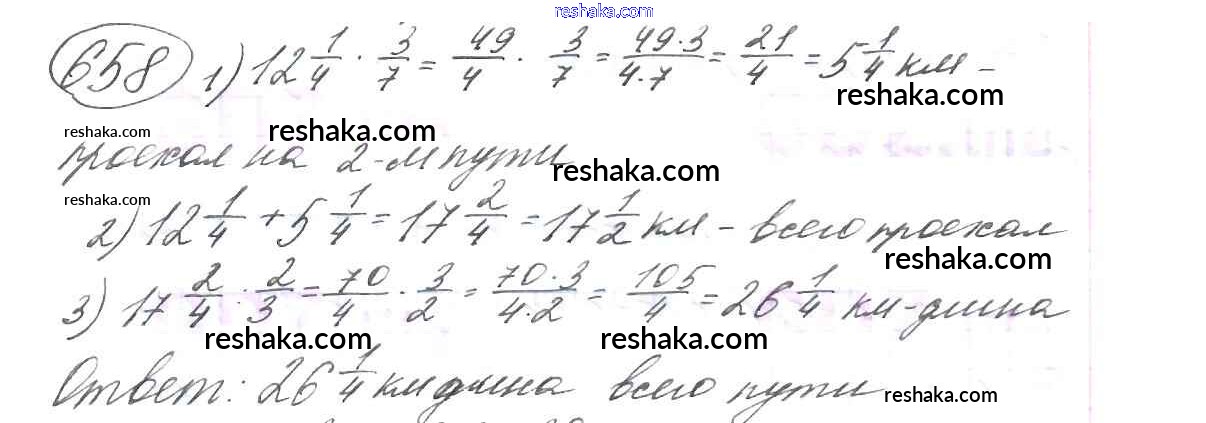 reshaka.com
658 1) 12 1/4 · 3/7 = 49/4 · 3/7 = 49·3/4·7 = 21/4 = 5 1/4 км –
reshaka.com
reshaka.com reshaka.com
проехал на 2-м пути
reshaka.com
reshaka.com
2) 12 1/4 + 5 1/4 = 17 2/4 = 17 1/2 км – всего проехал
reshaka.com
3) 17 2/4 : 2/3 = 70/4 · 3/2 = 70·3/4·2 = 105/4 = 26 1/4 км-длина
reshaka.com reshaka.com
Ответ: 26 1/4 км длина всего пути
reshaka.com